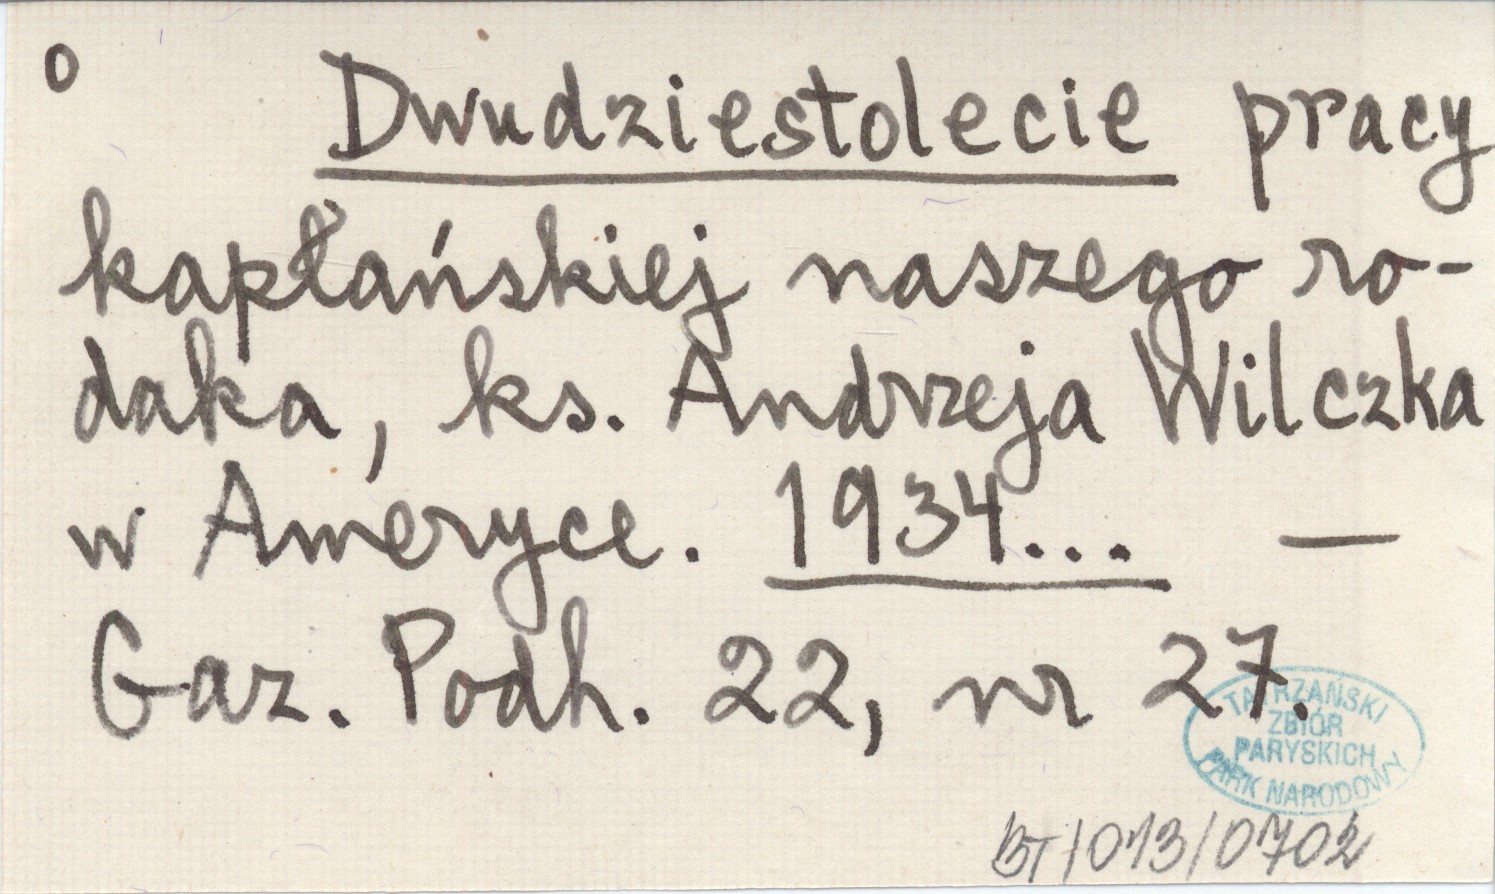 o Dwudziestolecie pracy
kapłańskiej naszego ro-
daka, ks. Andrzeja Wilczka
w Ameryce. 1934... —
Gaz. Podh. 22, nr 27.
TATRZAŃSKI
ZBIÓR
PARYSKICH
PARK NARODOWY
BT/013/0702